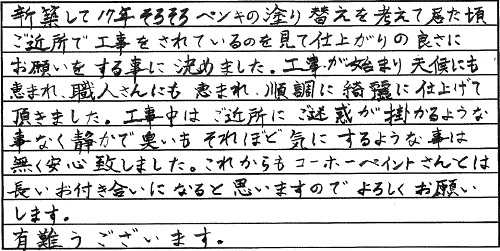 新築して17年そろそろペンキの塗り替えを考えて居た頃
ご近所で工事をされているのを見て仕上がりの良さに
お願いをする事に決めました。工事が始まり天候にも
恵まれ、職人さんにも恵まれ、順調に綺麗に仕上げて
頂きました。工事中はご近所にご迷惑が掛かるような
事なく静かで臭いもそれほど気にするような事は
無く安心致しました。これからもコーホーペイントさんとは
長いお付き合いになると思いますのでよろしくお願い
します。
有難うございます。